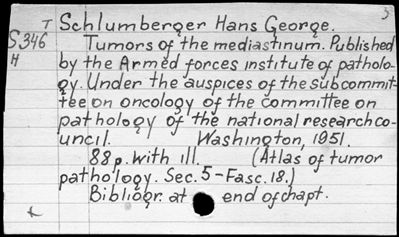 3
T Schlumberger Hans George.
S346 Tumors of the mediastinum. Published
H by the Armed forces institute of patholo-
gy. Under the auspices of the subcommit-
tee on oncology of the committee on
pathology of the national research co-
uncil. Washington, 1951.
88p. with ill. (Atlas of tumor
pathology. Sec. 5-Fasc. 18.)
Bibliogr. at end of chapt.